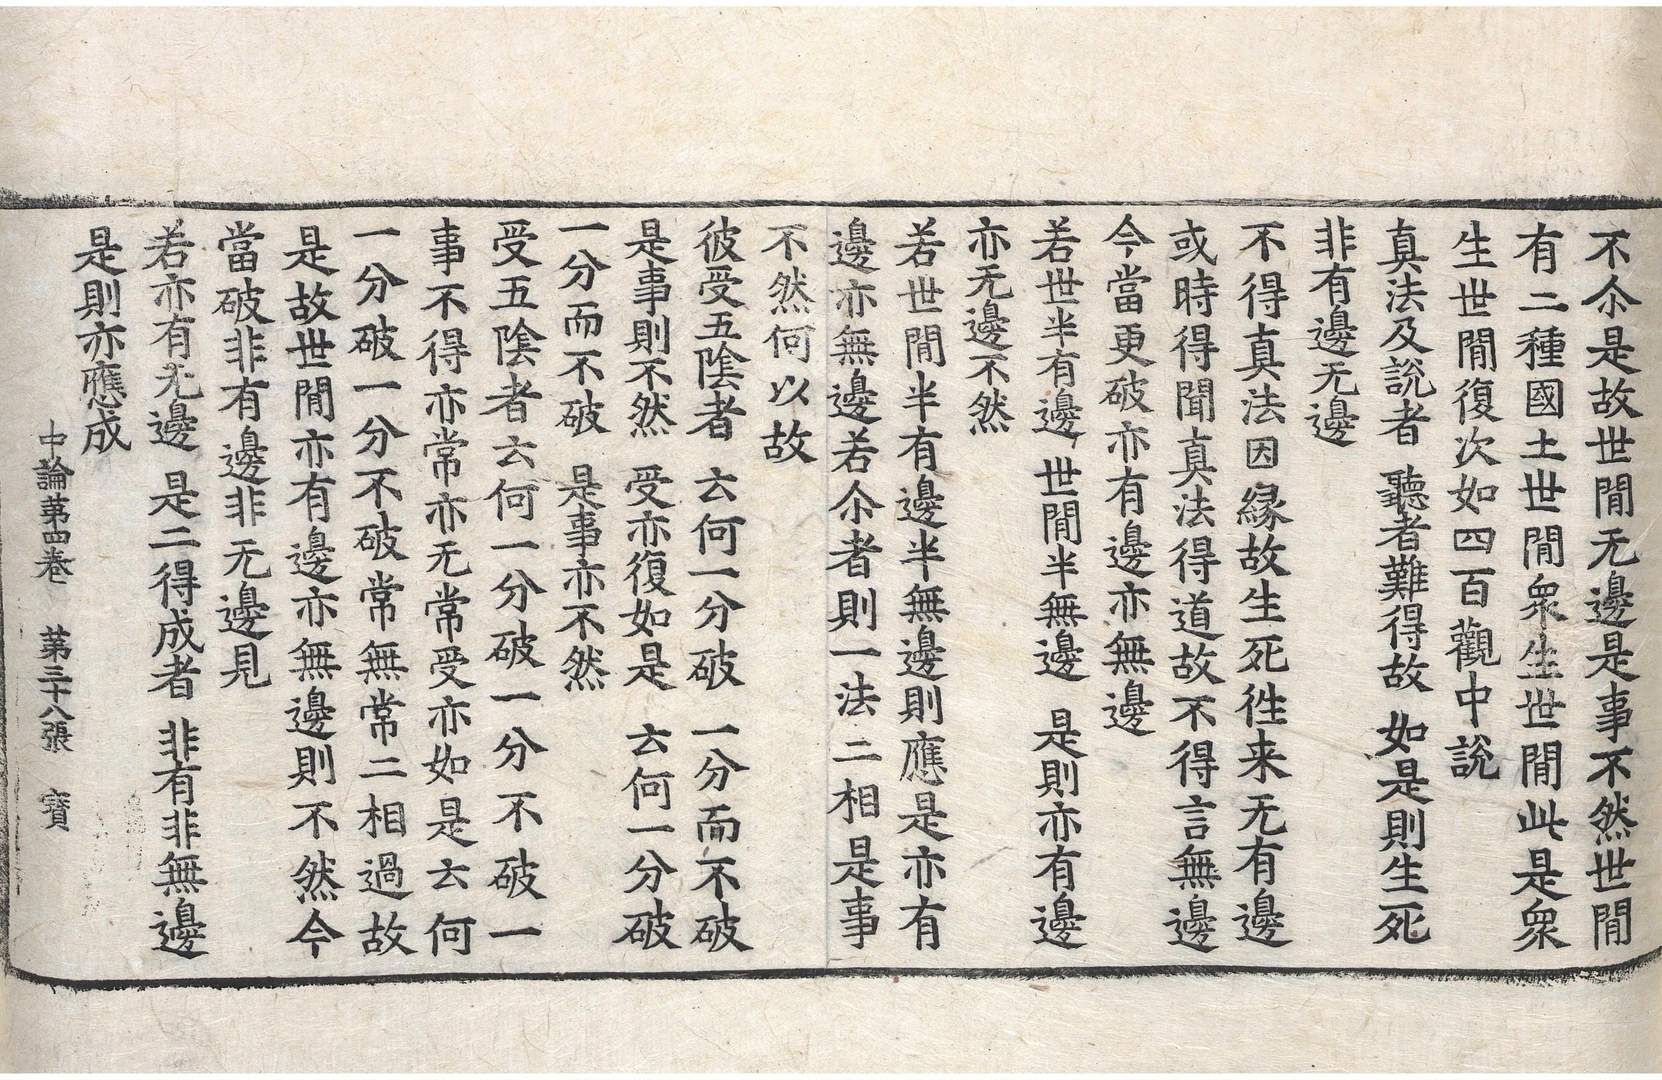 不尒是故世閒无邊是事不然世閒
有二種國土世閒眾生世閒此是眾
生世閒復次如四百觀中說
真法及說者 聽者難得故 如是則生死
非有邊无邊
不得真法因縁故生死徃来无有邊
或時得聞真法得道故不得言無邊
今當更破亦有邊亦無邊
若世半有邊 世閒半無邊 是則亦有邊
亦无邊不然
若世閒半有邊半無邊則應是亦有
邊亦無邊若尒者則一法二相是事
不然何以故
彼受五陰者 云何一分破 一分而不破
是事則不然 受亦復如是 云何一分破
一分而不破 是事亦不然
受五陰者云何一分破一分不破一
事不得亦常亦无常受亦如是云何
一分破一分不破常無常二相過故
是故世閒亦有邊亦無邊則不然今
當破非有邊非无邊見
若亦有无邊 是二得成者 非有非無邊
是則亦應成
中論第四卷 第三十八張 寶